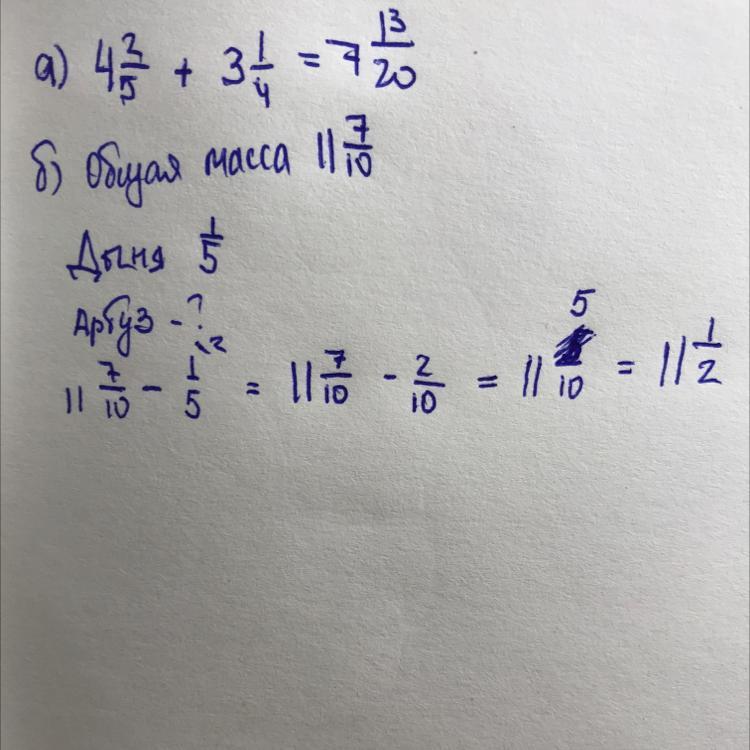 а) 4 2/5 + 3 1/4 = 7 13/20
б) Общая масса 11 7/10
Дыня 1/5
Арбуз - ?
11 7/10 - 1/5 \2 = 11 7/10 - 2/10 = 11 5/10 = 11 1/2